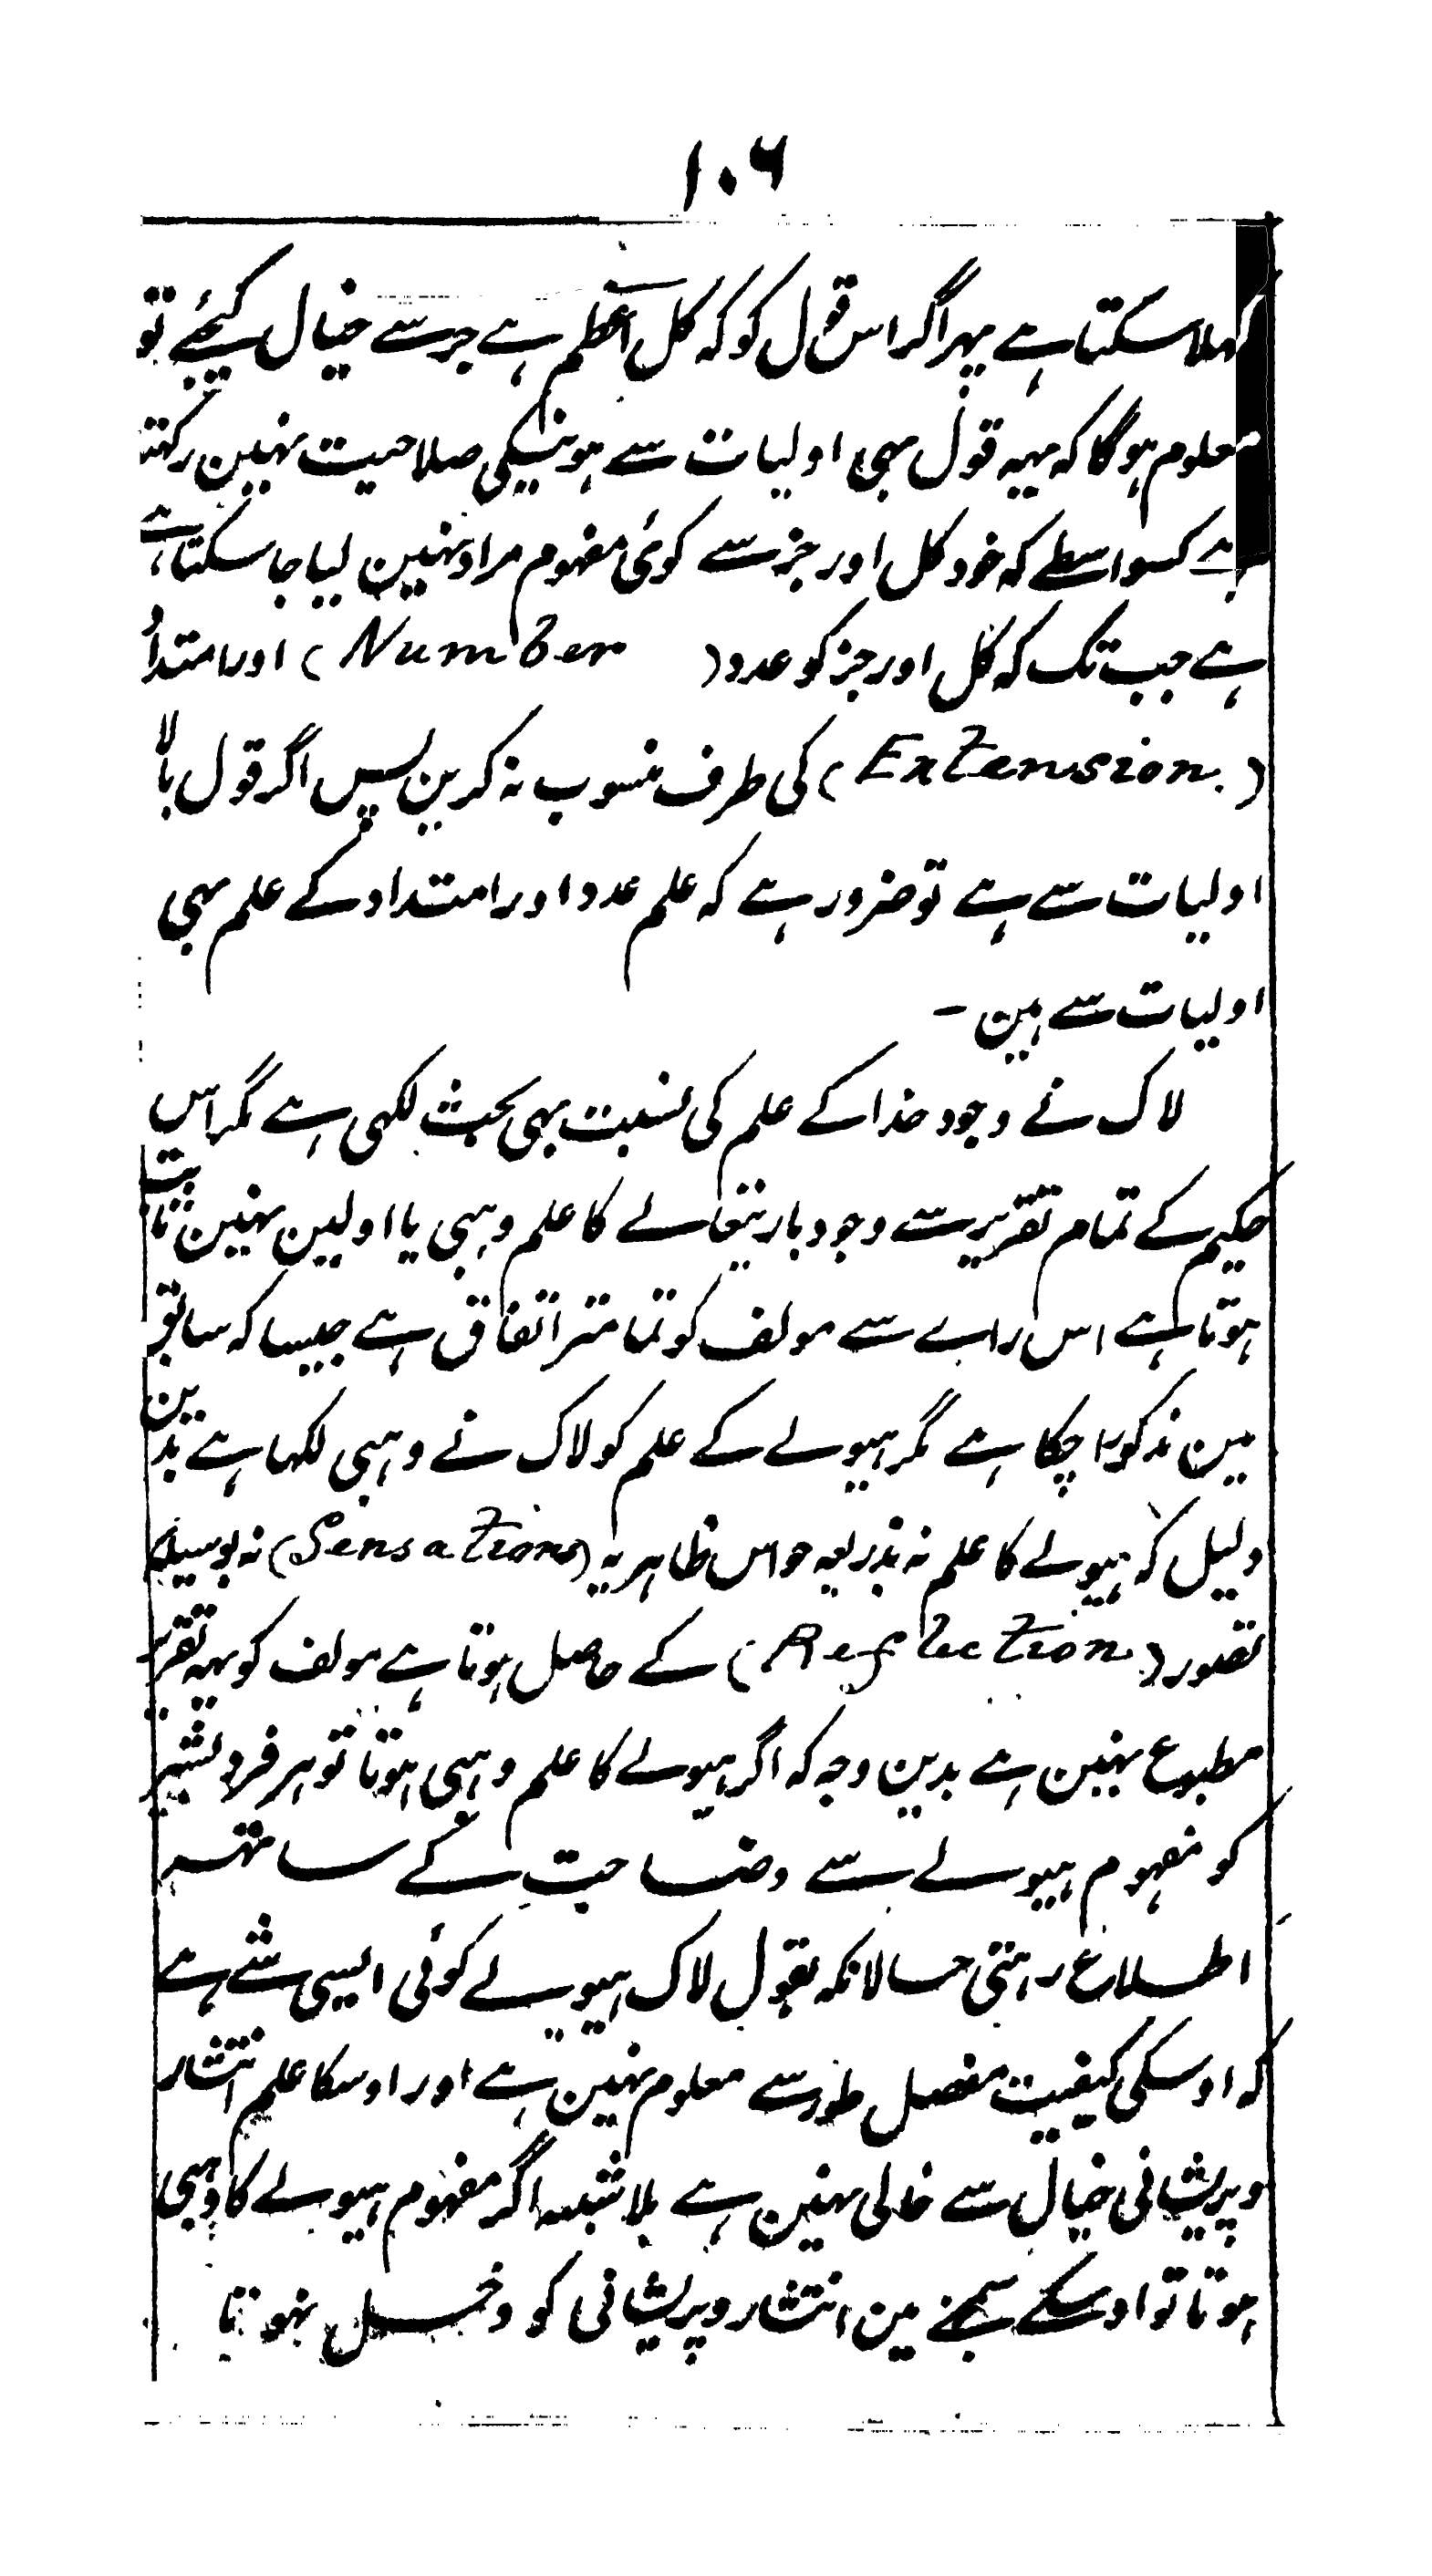 ۱۰۶
کہلا سکتا ہے پہر اگر اس قول کو کہ کل اعظم ہے جز سے خیال کیجئے تو
معلوم ہوگا کہ یہہ قول بہی اولیات سے ہونیکی صلاحیت نہین رکہتا
ہے کسواسطے کہ خود کل اور جز سے کوئی مفہوم مراد نہین لیا جا سکتا ہے
ہے جب تک کہ کل اور جز کو عدد (Number) اور امتداد
(Extension) کی طرف منسوب نہ کرین پس اگر قول بالا
اولیات سے ہے تو ضرور ہے کہ علم عدد اور امتداد کے علم بہی
اولیات سے ہین ۔
لاک نے وجود خدا کے علم کی نسبت بہی بحث لکہی ہے مگر اس
حکیم کے تمام تقریر سے وجود باریتعالے کا علم وہبی یا اولین نہین ثابت
ہوتا ہے اس راے سے مولف کو تمامتر اتفاق ہے جیسا کہ سابق
مین مذکور ا چکا ہے مگر ہیولے کے علم کو لاک نے وہبی لکہا ہے بدین
دلیل کہ ہیولے کا علم نہ بذریعہ حواس ظاہریہ (Sensations) نہ بوسیلہ
تصور (Reflection) کے حاصل ہوتا ہے مولف کو یہہ تقریر
مطبوع نہین ہے بدین وجہ کہ اگر ہیولے کا علم وہبی ہوتا تو ہر فرد بشر
کو مفہوم ہیولے سے وضاحت کے ساتہہ
اطلاع رہتی حالانکہ بقول لاک ہیولے کوئی ایسی شے ہے
کہ اوسکی کیفیت مفصل طور سے معلوم نہین ہے اور اوسکا علم انتشار
و پریشانی خیال سے خالی نہین ہے بلا شبہہ اگر مفہوم ہیولے کا وہبی
ہوتا تو اوسکے سمجہنے مین انتشار و پریشانی کو دخل نہوتا